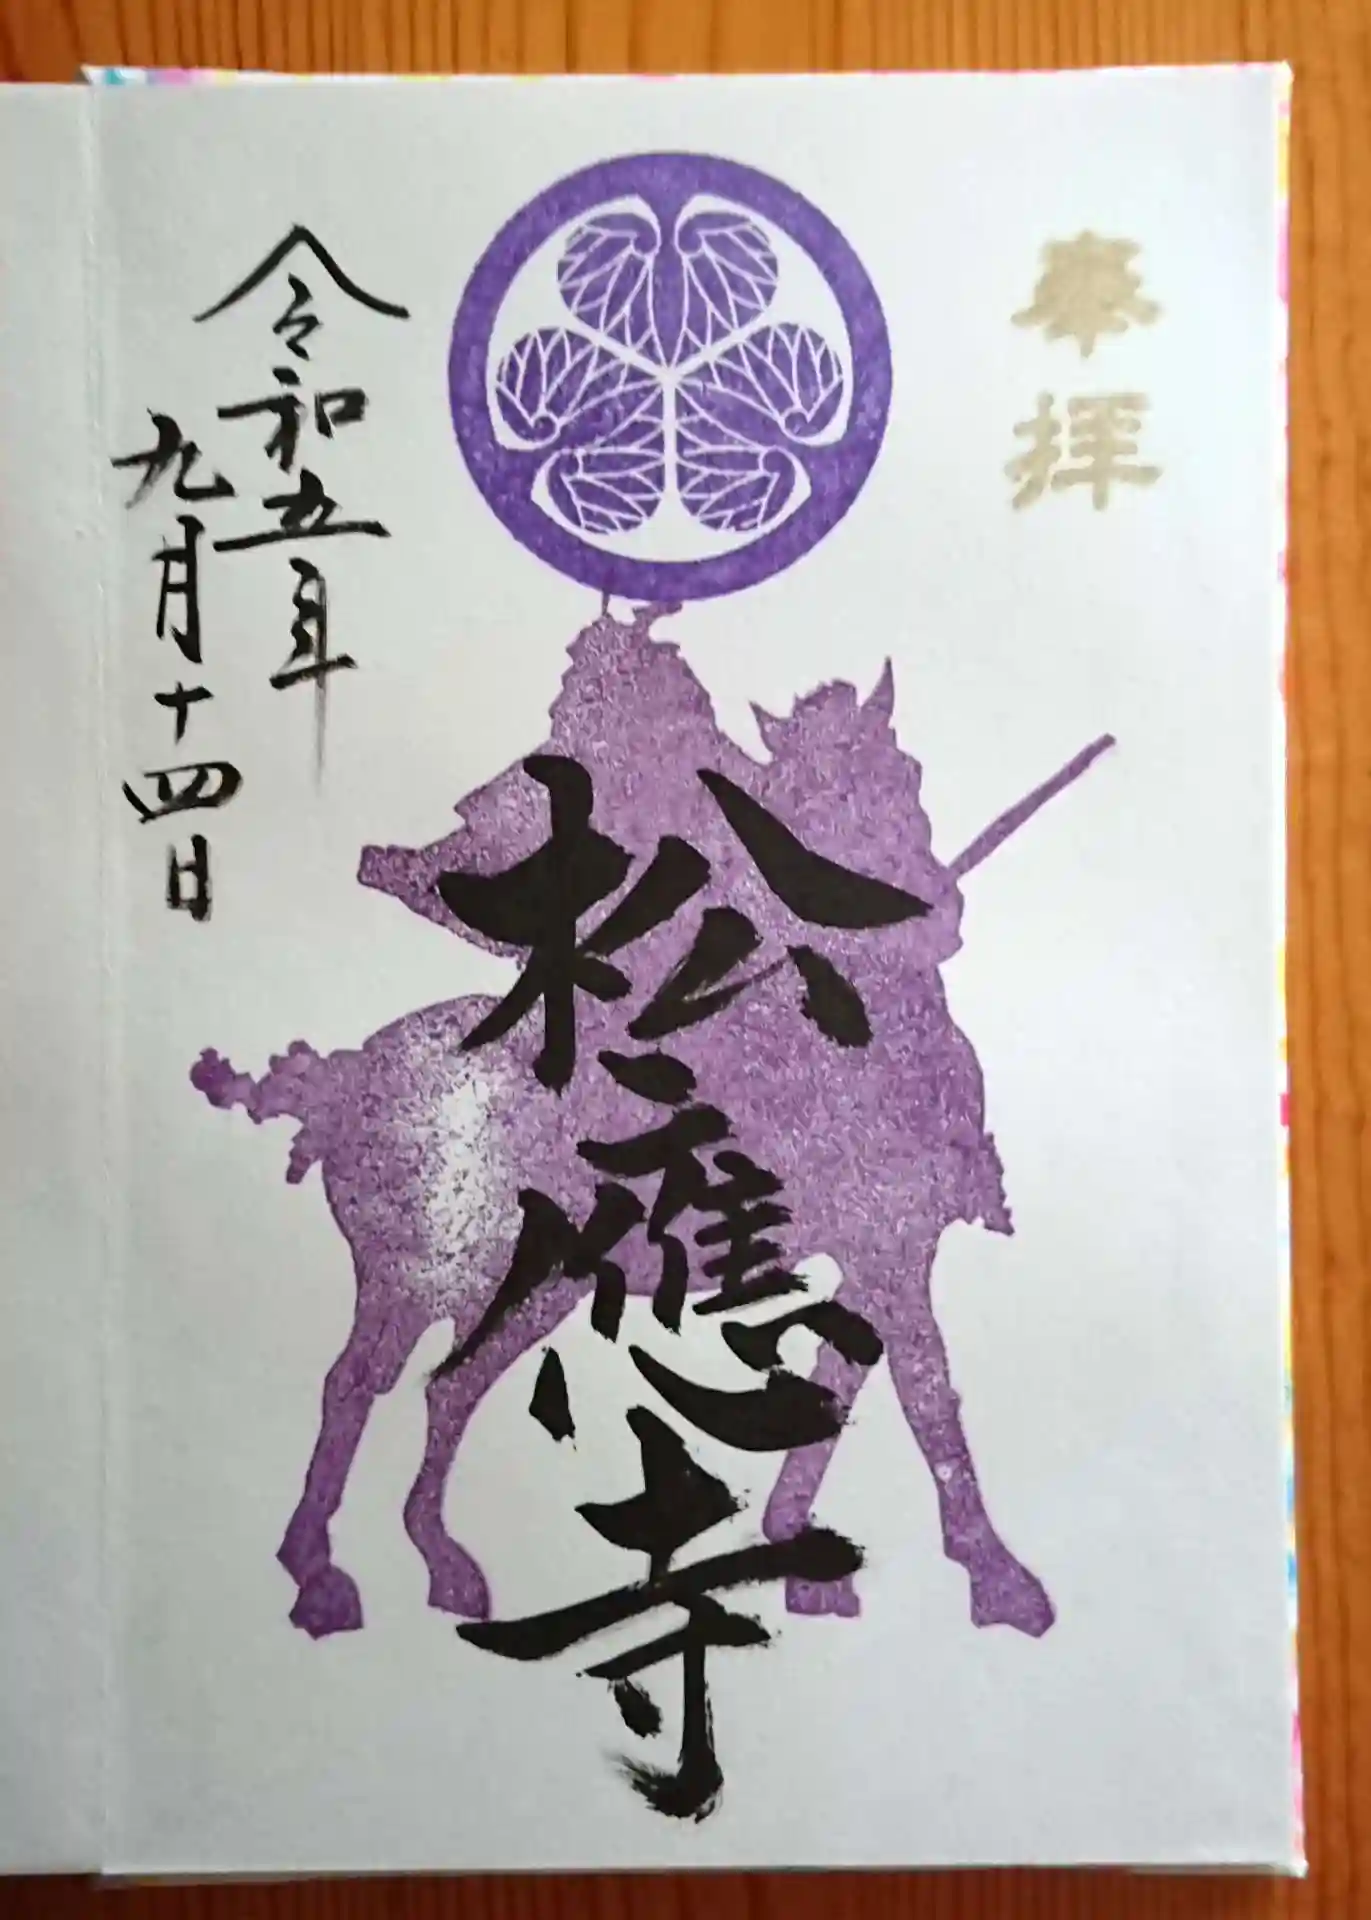 奉拝
松應寺
令和五年
九月十四日